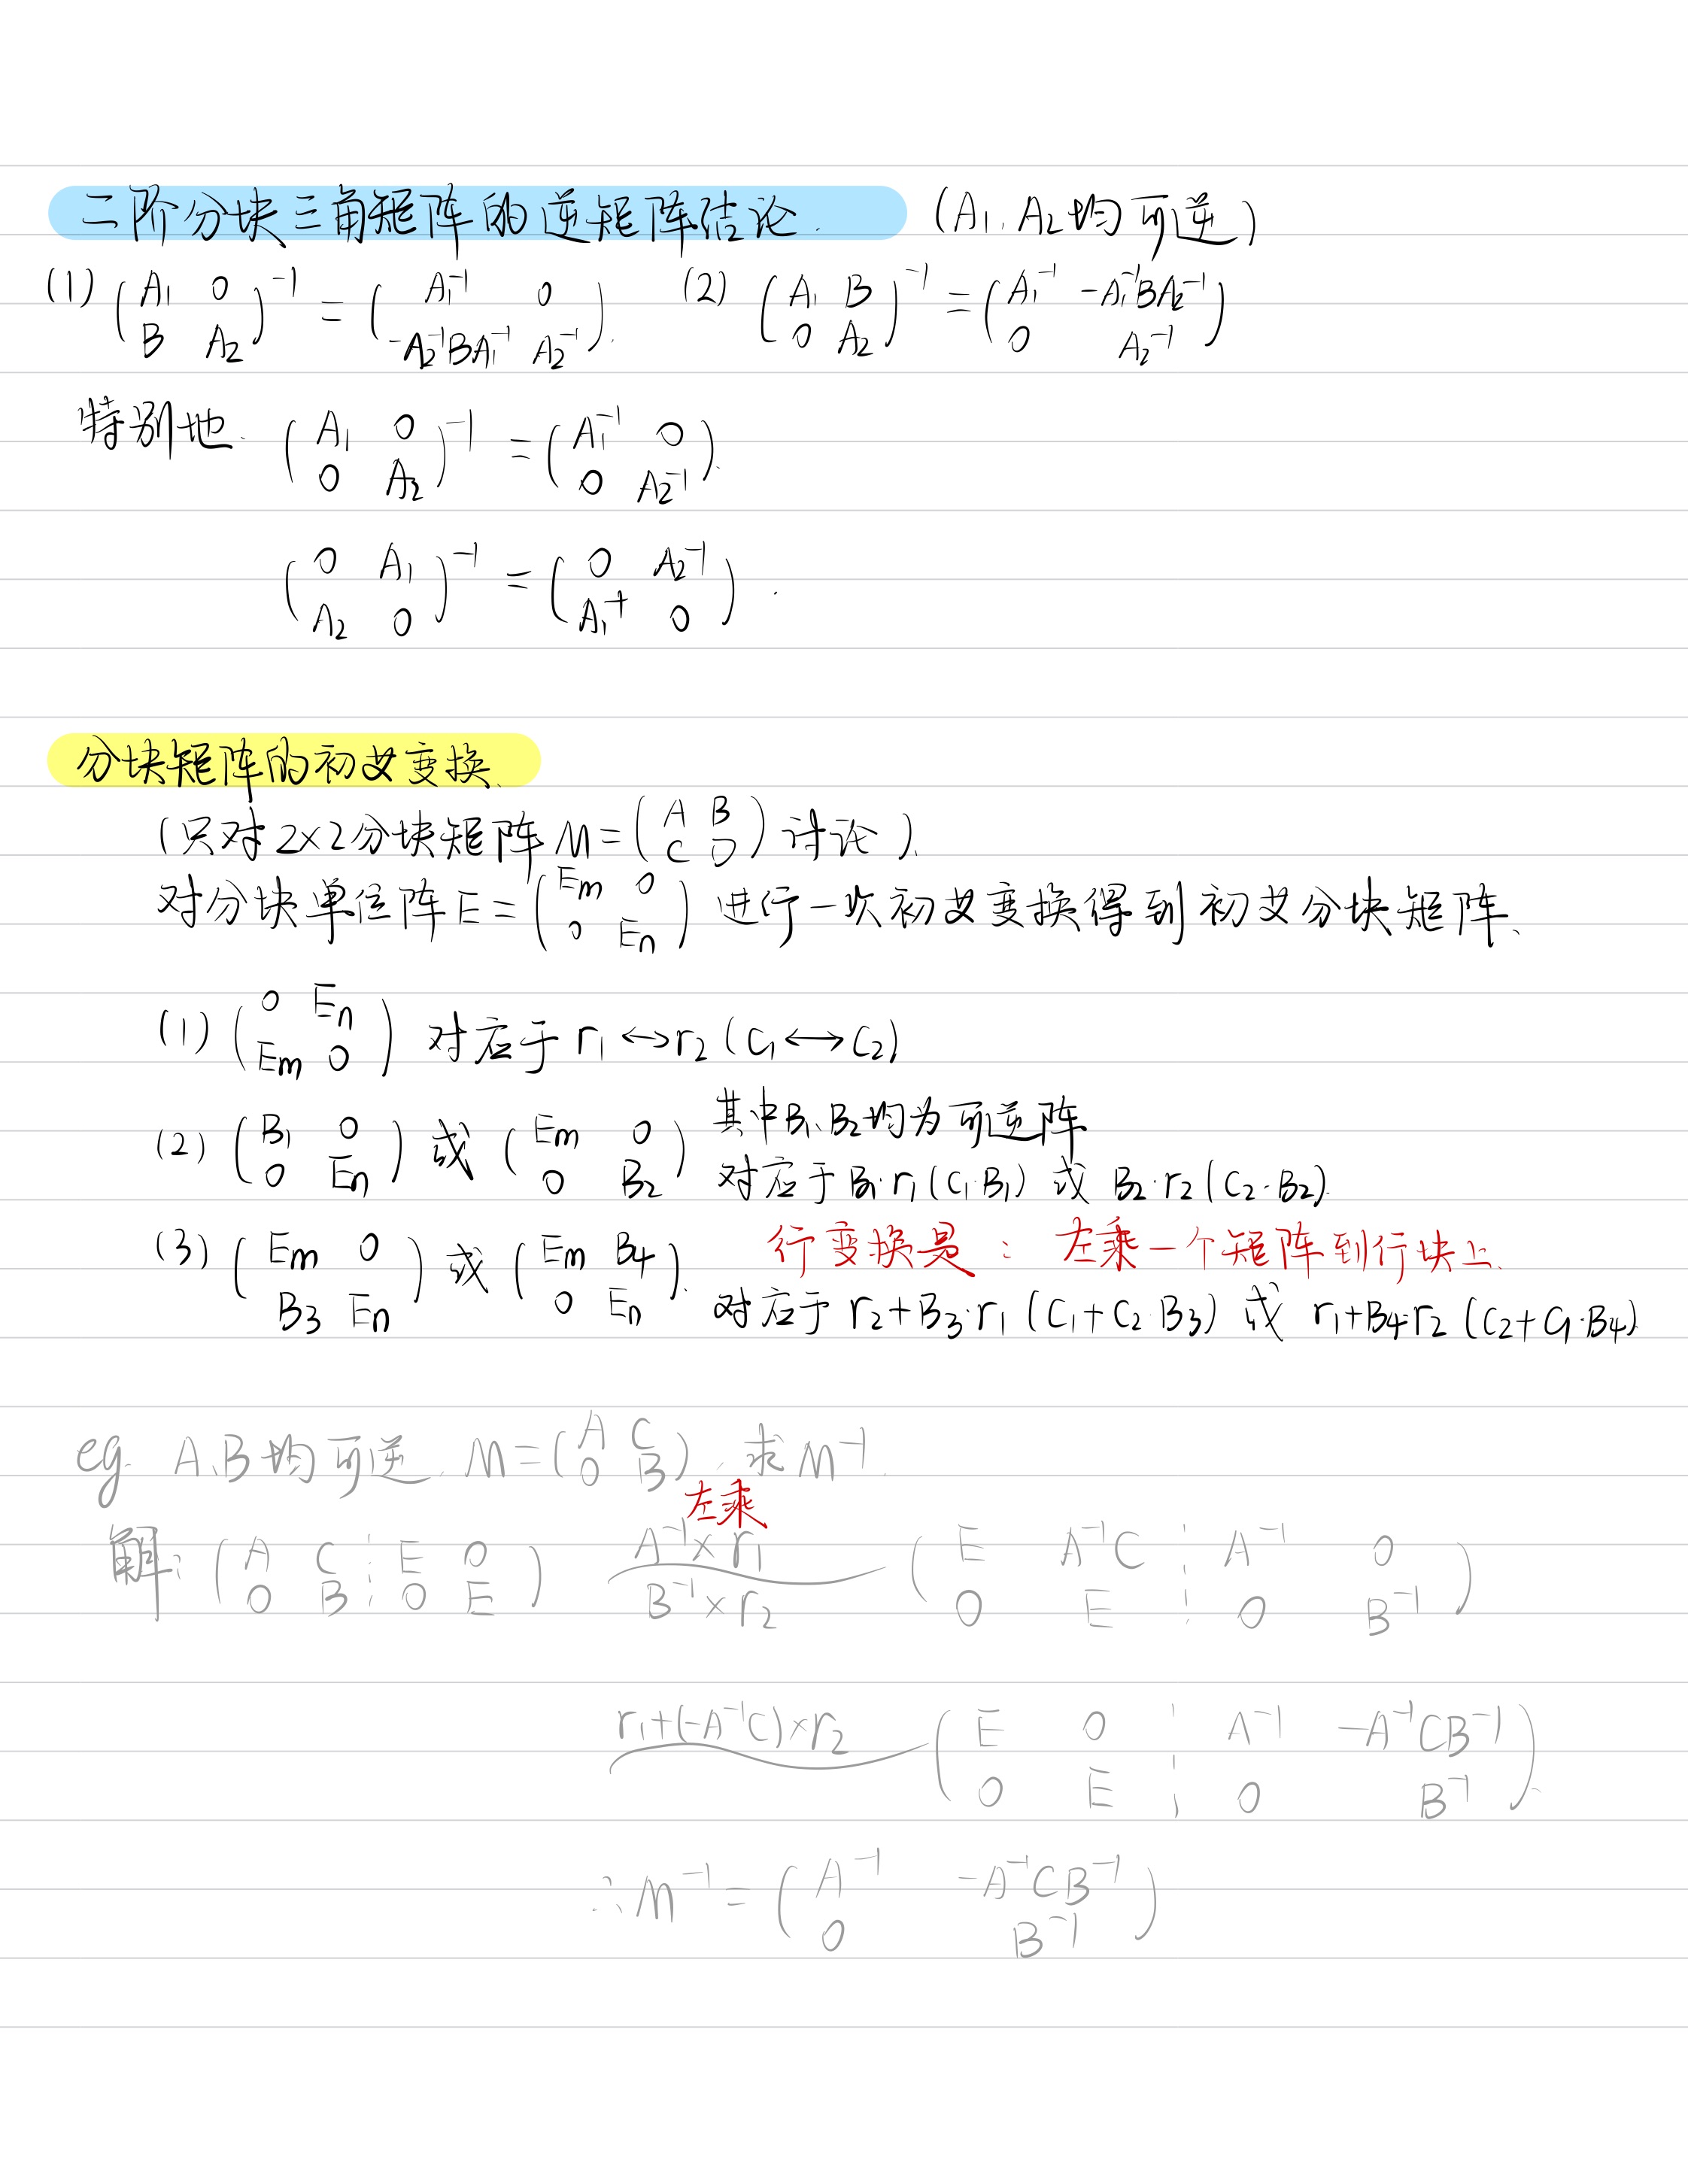 二阶分块三角矩阵的逆矩阵结论. (A₁, A₂均可逆)
(1) (A₁ 0; B A₂)⁻¹ = (A₁⁻¹ 0; -A₂⁻¹BA₁⁻¹ A₂⁻¹). (2) (A₁ B; 0 A₂)⁻¹ = (A₁⁻¹ -A₁⁻¹BA₂⁻¹; 0 A₂⁻¹)
特别地. (A₁ 0; 0 A₂)⁻¹ = (A₁⁻¹ 0; 0 A₂⁻¹).
(0 A₁; A₂ 0)⁻¹ = (0 A₂⁻¹; A₁⁻¹ 0).
分块矩阵的初艾变换.
(只对2×2分块矩阵M=(A B; C D)讨论).
对分块单位阵E=(Em 0; 0 En)进行一次初艾变换得到初艾分块矩阵、
(1) (0 En; Em 0) 对应于 r₁↔r₂ (c₁↔c₂)
(2) (B₁ 0; 0 En) 或 (Em 0; 0 B₂) 其中B₁、B₂均为可逆阵
对应于B₁·r₁(c₁·B₁) 或 B₂·r₂(c₂·B₂).
(3) (Em 0; B₃ En) 或 (Em B₄; 0 En). 行变换是: 左乘一个矩阵到行块上.
对应于 r₂+B₃·r₁ (c₁+c₂·B₃) 或 r₁+B₄·r₂ (c₂+c₁·B₄)
eg. A、B均可逆, M=(A C; 0 B), 求M⁻¹.
左乘
解: (A C ⋮ E 0; 0 B ⋮ 0 E) A⁻¹×r₁ B⁻¹×r₂ (E A⁻¹C ⋮ A⁻¹ 0; 0 E ⋮ 0 B⁻¹)
r₁+(-A⁻¹C)×r₂ (E 0 ⋮ A⁻¹ -A⁻¹CB⁻¹; 0 E ⋮ 0 B⁻¹).
∴M⁻¹ = (A⁻¹ -A⁻¹CB⁻¹; 0 B⁻¹)